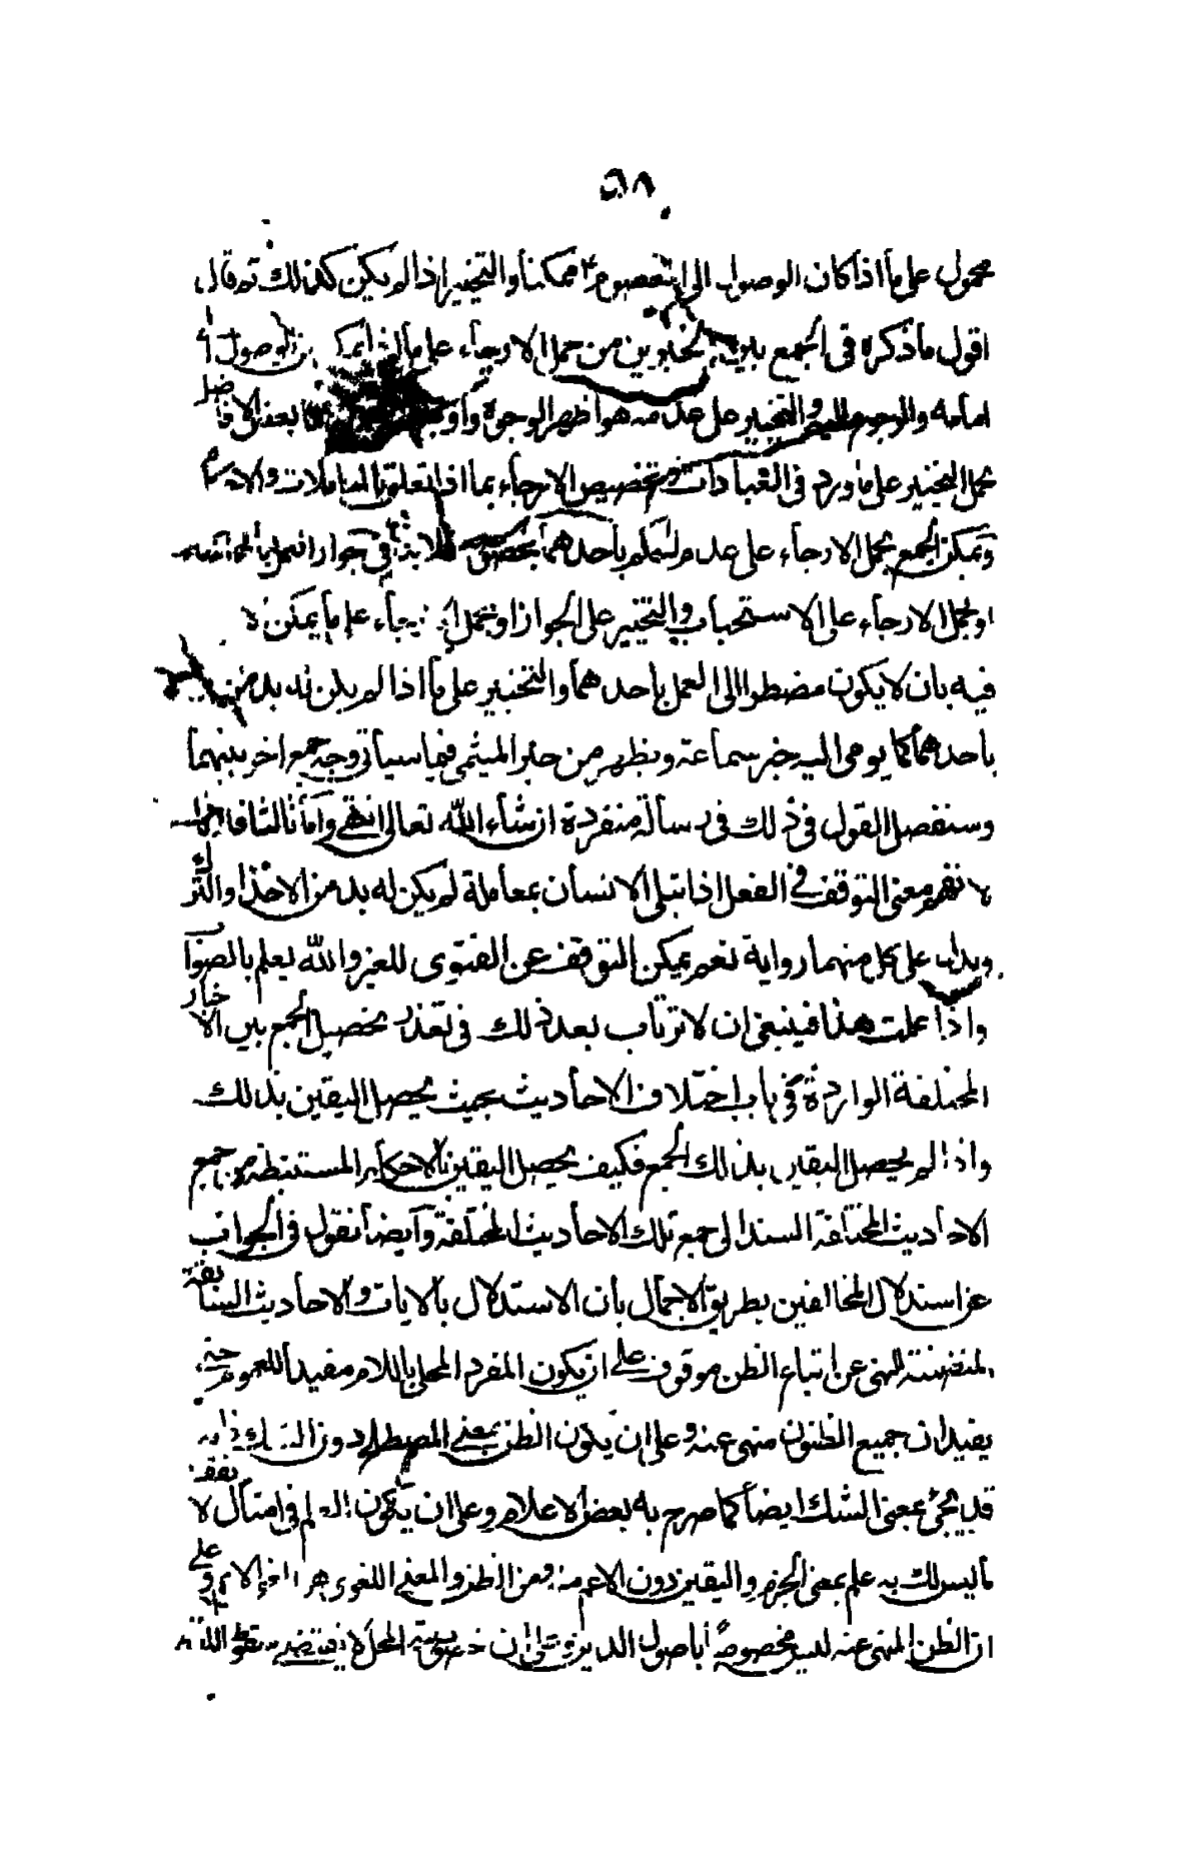 ٥٨
محمول على ما اذا كان الوصول الى المعصوم ع ممكنا والتخيير اذا لم يكن كذلك ثم قال
اقول ما ذكره في الجمع بين الخبرين من حمل الارجاء على ما اذا امكن الوصول الى
امامه والرجوع اليه والتخيير على عدمه هو اظهر الوجوه و بعض الافاضل
حمل التخيير على ما ورد في العبادات وتخصيص الارجاء بما اذا تعلق بالمعاملات والاحكام
ويمكن الجمع بحمل الارجاء على عدم الحكم باحدهما بخصوصه فلا ينافي جواز العمل بايهما شاء
او بحمل الارجاء على الاستحباب والتخيير على الجواز او بحمل الارجاء على ما يمكن
فيه بان لا يكون مضطرا الى العمل باحدهما والتخيير على ما اذا لم يكن له بد من
باحدهما كما يومى اليه خبر سماعة ويظهر من خبر الميثمى فيما سياتى وجه جمع اخر بينهما
وسنفصل القول في ذلك في رسالة منفردة ان شاء الله تعالى انتهى واما ثالثا
لا نفهم معنى التوقف في الفعل اذا ابتلى الانسان بمعاملة لم يكن له بد من الاخذ او الترك
ويدل على كل منهما رواية نعم يمكن التوقف عن الفتوى للغير والله يعلم بالصواب
واذا علمت هذا فينبغى ان لا ترتاب بعد ذلك في تعذر تحصيل الجمع بين الاخبار
المختلفة الواردة في باب اختلاف الاحاديث بحيث يحصل اليقين بذلك
واذا لم يحصل اليقين بذلك الجمع فكيف يحصل اليقين بالاحكام المستنبطة من جمع
الاحاديث المختلفة المستند الى جمع تلك الاحاديث المختلفة وايضا نقول في الجواب
عن استدلال المخالفين بطريق الاجمال بان الاستدلال بالايات والاحاديث السابقة
المتضمنة للنهى عن اتباع الظن موقوف على ان يكون المفرد المحلى باللام مفيدا للعموم حتى
يفيد ان جميع الظنون منهى عنه وعلى ان يكون الظن بمعنى المصطلح دون الشك فانه
قد يجئ بمعنى الشك ايضا كما صرح به بعض الاعلام وعلى ان يكون العلم في امثال لا تقف
ما ليس لك به علم بمعنى الجزم واليقين دون الاعم منه ومن الظن والمعنى اللغوى هو الاعم وعلى
ان الظن المنهى عنه ليس مخصوصا باصول الدين وعلى ان خصوصية المحل لا يقتضى سقوط